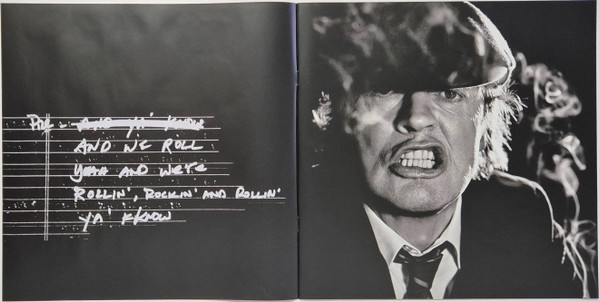 AND YA' KNOW
AND WE ROLL
YEAH AND WE'RE
ROLLIN', ROCKIN' AND ROLLIN'
YA' KNOW